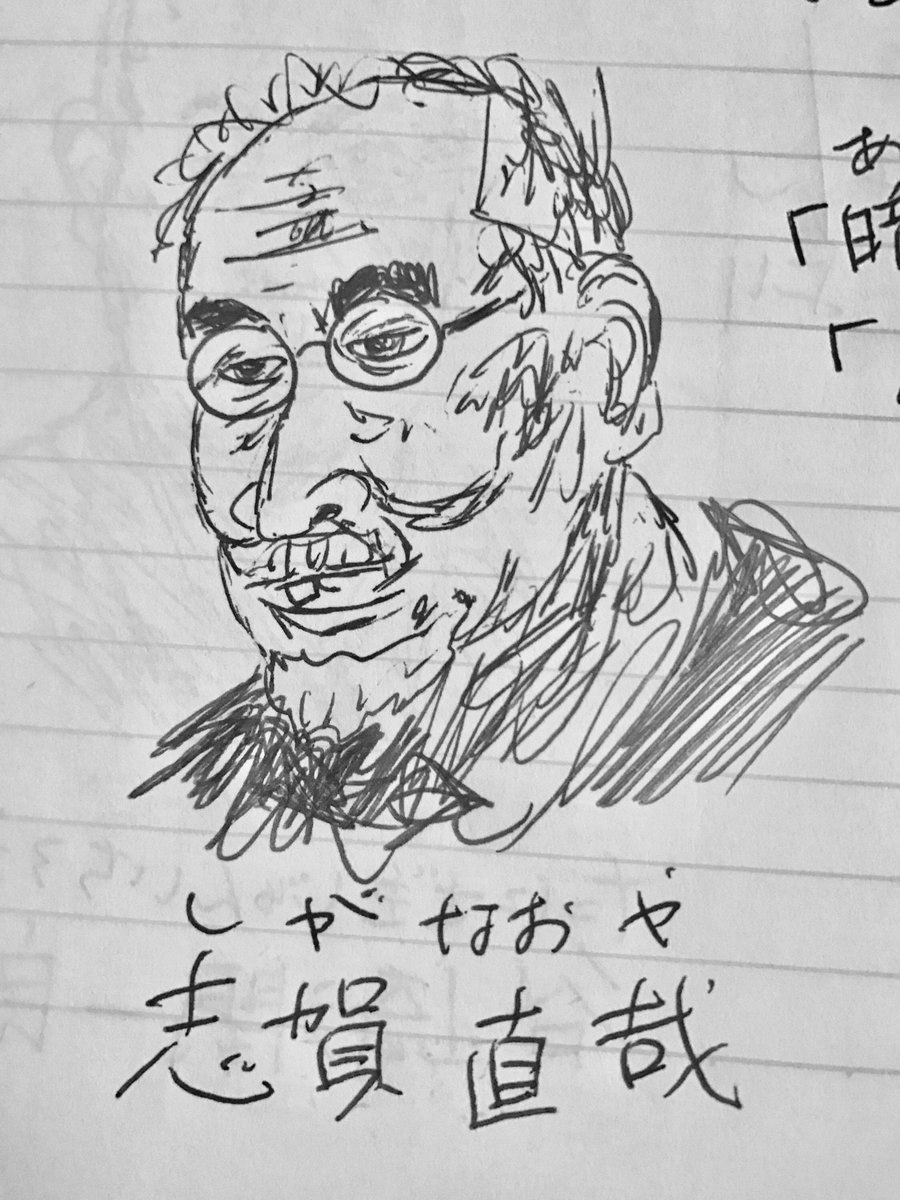 あ
「暗
「
しがなおや
志賀直哉